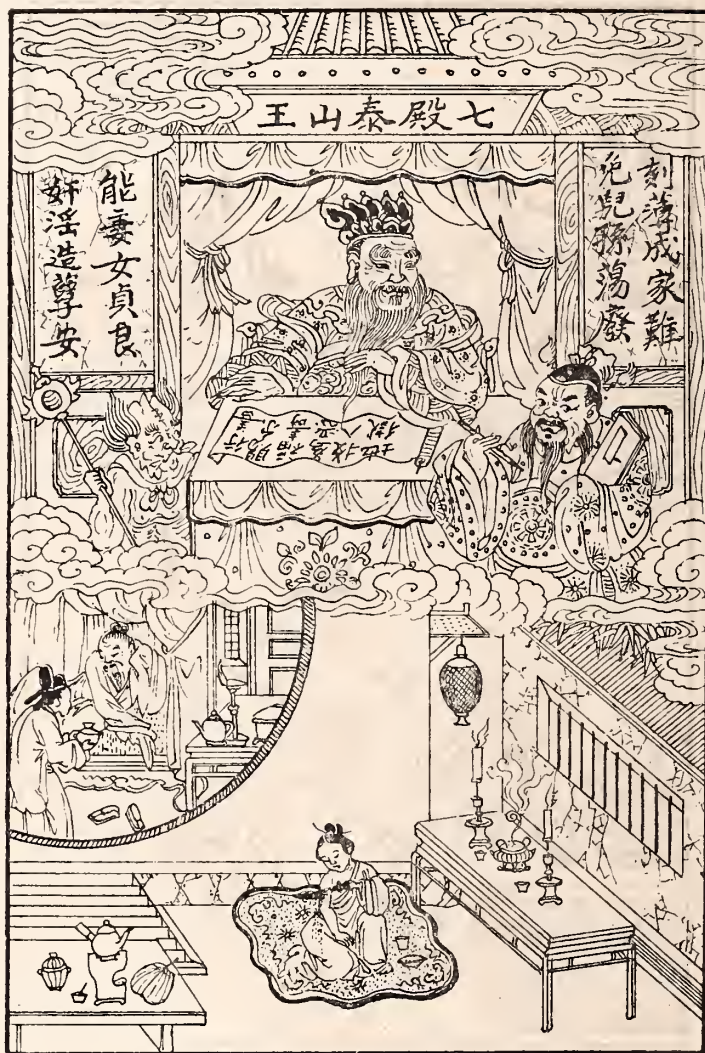 七殿泰山王
刻薄成家難
免兒孫蕩廢
奸淫造孽安
能妻女貞良